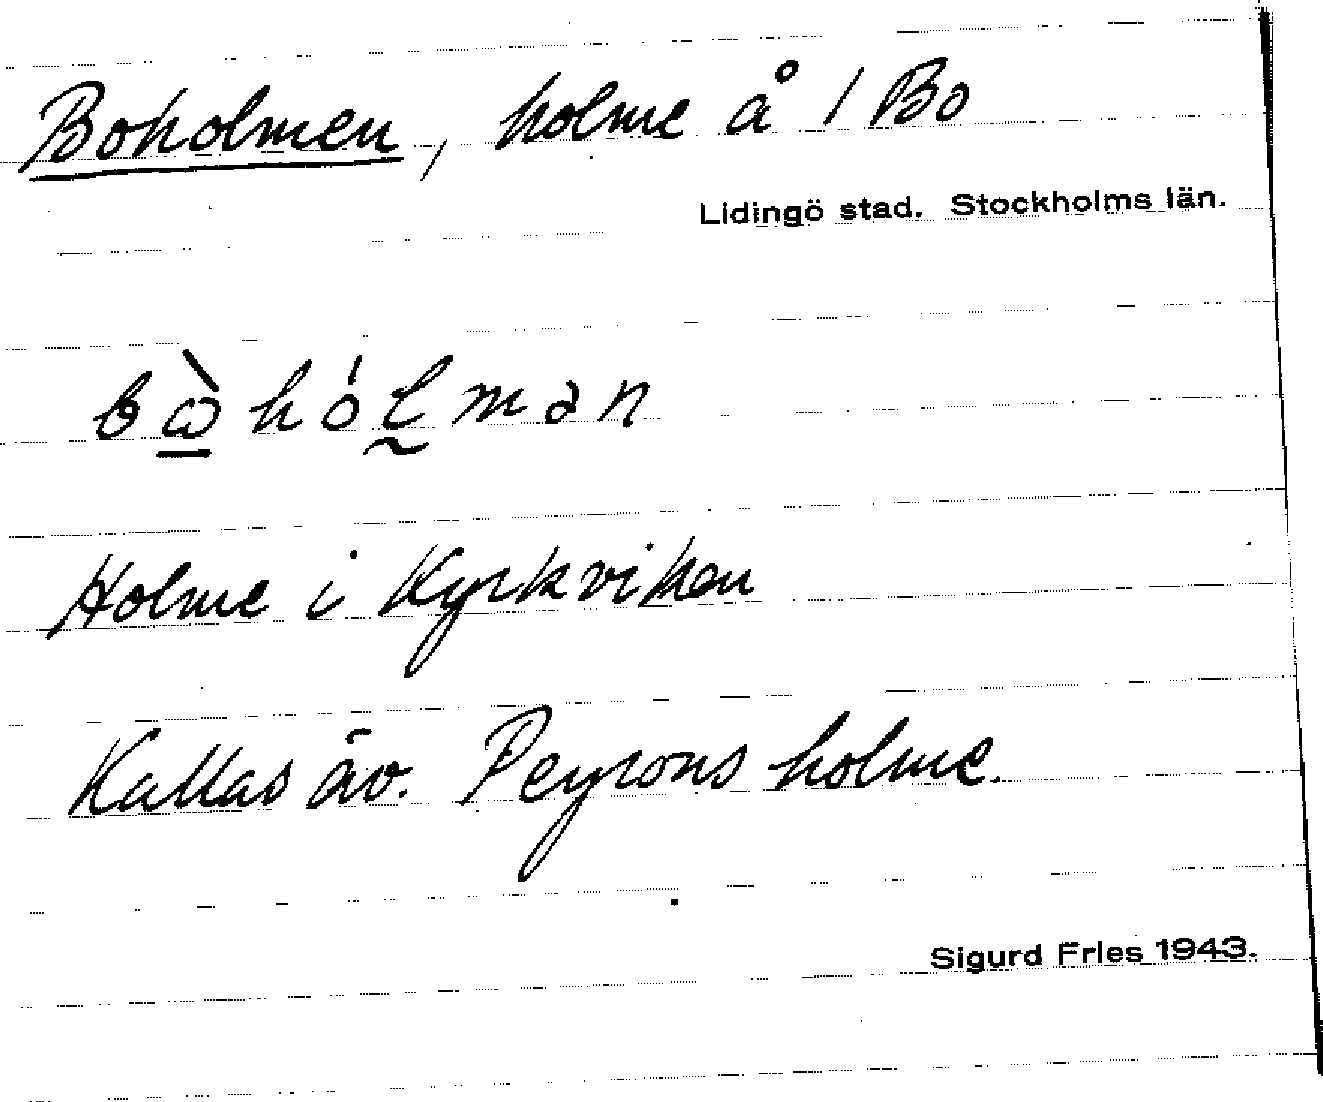 Boholmen, holme å 1 Bo
Lidingö stad. Stockholms län.
bὼ̲hólmən
Holme i Kyrkviken
Kallas äv. Peyrons holme.
Sigurd Fries 1943.